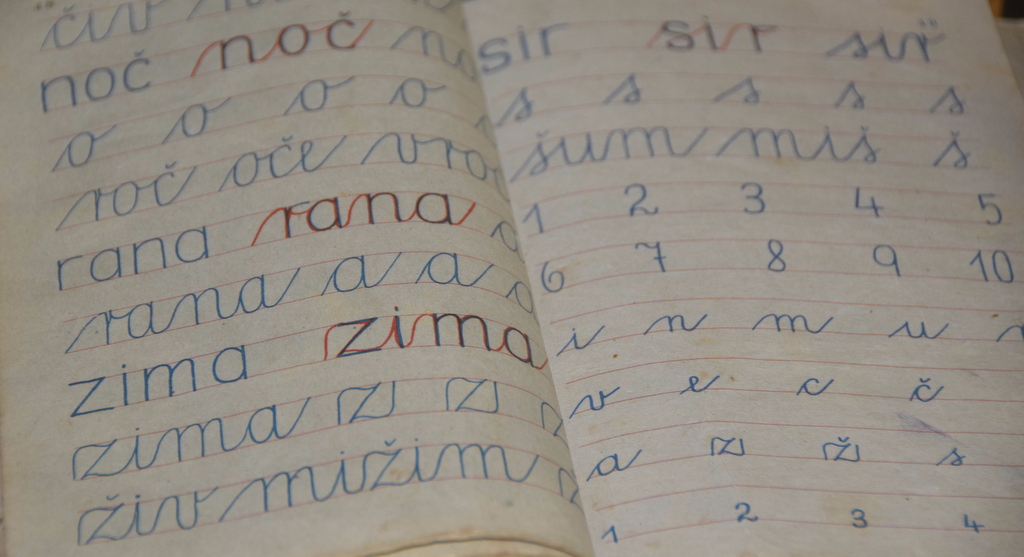 noč noč
o o o o
roč oče
rana rana
rana a a
zima zima
zima z z
živ mižim
sir sir sir
s s s s s
šum miš š
1 2 3 4 5
6 7 8 9 10
i n m u
v e c č
a z ž s
1 2 3 4